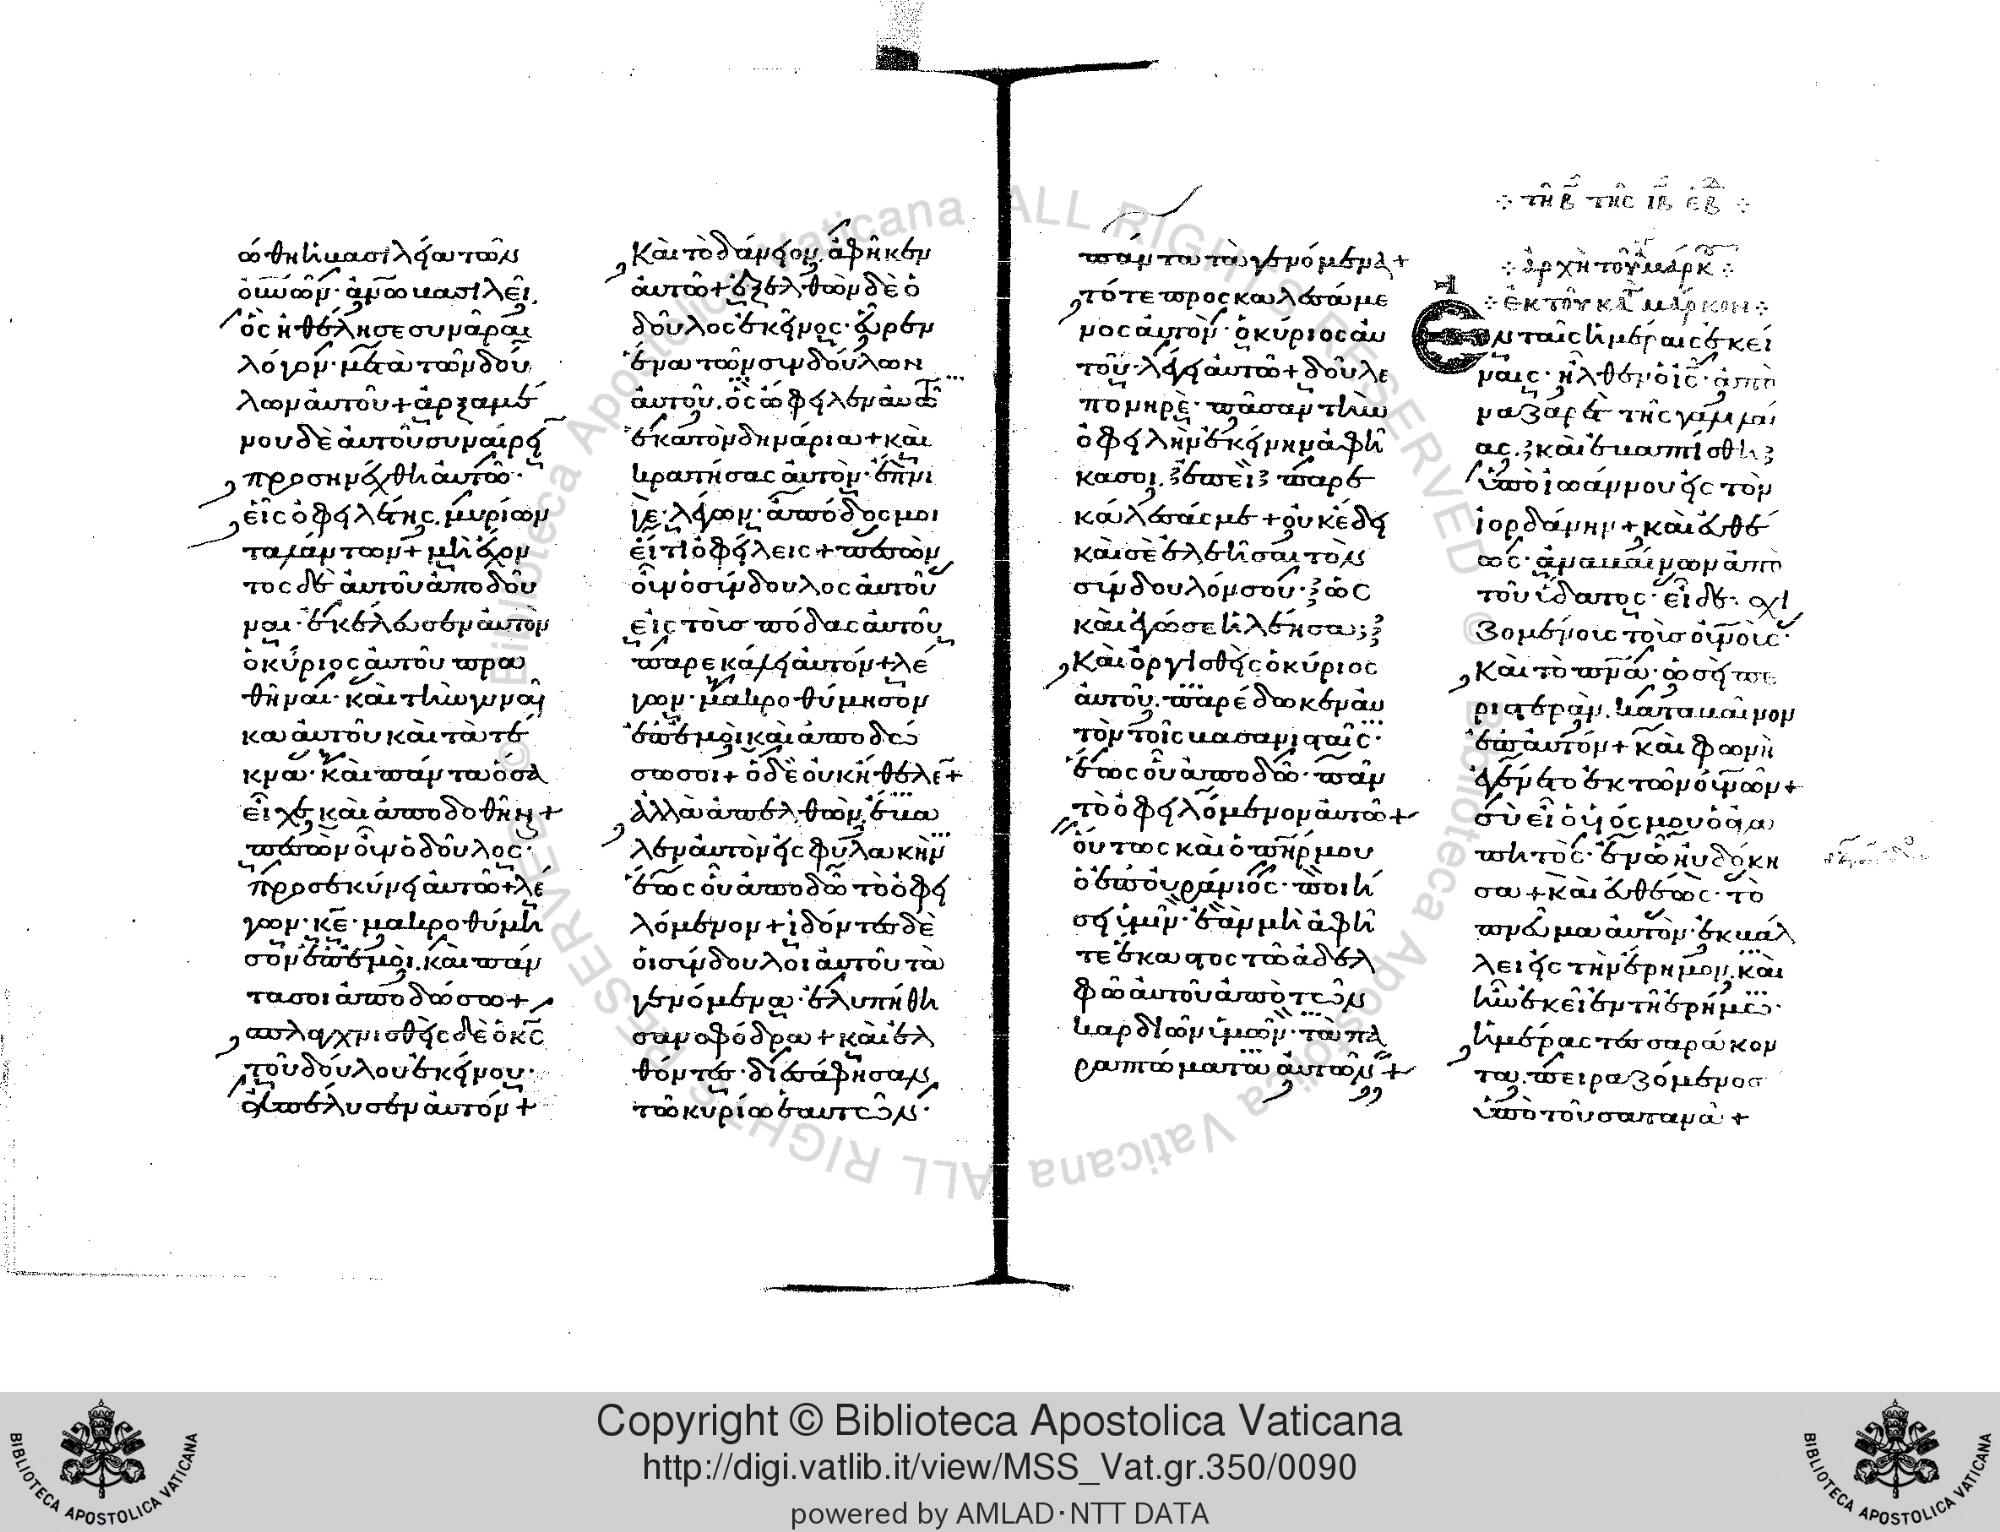 ώθη ἡ βασιλεία τῶν
οὐνῶν· ἀνω βασιλεῖ,
ὃς ἠθέλησε συνᾶραι
λόγον· μετὰ τῶν δού
λων αὐτοῦ + ἀρξαμέ
νου δὲ αὐτοῦ συναίρει
προσηνέχθη αὐτῶ·
εἷς ὀφειλέτης, μυρίων
ταλάντων + μὴ ἔχον
τος δὲ αὐτοῦ ἀποδοῦ
ναι· ἐκέλευσεν αὐτὸν
ὁ κύριος αὐτοῦ πρα
θῆναι· καὶ τὴν γυναῖ
κα αὐτοῦ καὶ τὰ τέ
κνα· καὶ πάντα ὅσα
εἶχε, καὶ ἀποδοθῆναι +
πεσὼν οὖν ὁ δοῦλος·
προσεκύνει αὐτῶ + λέ
γων· κε· μακροθύμη
σον ἐπ' ἐμοὶ, καὶ πάν
τα σοι ἀποδώσω +
σπλαγχνισθεὶς δὲ ὁ κς
τοῦ δούλου ἐκείνου·
ἀπέλυσεν αὐτόν +
Καὶ τὸ δάνειον, ἀφῆκεν
αὐτῶ + ἐξελθὼν δὲ ὁ
δοῦλος ἐκεῖνος· εὗρεν
ἕνα τῶν συνδούλων
αὐτοῦ, ὃς ὤφειλεν αὐτῶ
ἑκατὸν δηνάρια + καὶ
κρατήσας αὐτὸν· ἔπνι
γε· λέγων· ἀπόδος μοι
εἴ τι ὀφείλεις + πεσὼν
οὖν ὁ σύνδουλος αὐτοῦ
εἰς τοὺς πόδας αὐτοῦ,
παρεκάλει αὐτόν + λέ
γων· μακροθύμησον
ἐπ' ἐμοὶ καὶ ἀποδώ
σω σοι + ὁ δὲ οὐκ ἤθελεν +
ἀλλὰ ἀπελθὼν, ἔβα
λεν αὐτὸν εἰς φυλακὴν
ἕως οὗ ἀποδῶ τὸ ὀφει
λόμενον + ἰδόντες δὲ
οἱ σύνδουλοι αὐτοῦ τὰ
γενόμενα· ἐλυπήθη
σαν σφόδρα + καὶ ἐλ
θόντες· διεσάφησαν
τῶ κυρίω ἑαυτῶν·
πάντα τὰ γενόμενα +
τότε προσκαλεσάμε
νος αὐτὸν· ὁ κύριος αὐ
τοῦ· λέγει αὐτῶ + δοῦλε
πονηρὲ· πᾶσαν τὴν
ὀφειλὴν ἐκείνην ἀφῆ
κά σοι, ἐπεὶ παρε
κάλεσάς με + οὐκ ἔδει
καὶ σὲ ἐλεῆσαι τὸν
σύνδουλόν σου· ὡς
καὶ ἐγώ σε ἠλέησα;
Καὶ ὀργισθεὶς ὁ κύριος
αὐτοῦ, παρέδωκεν αὐ
τὸν τοῖς βασανισταῖς·
ἕως οὗ ἀποδῶ· πᾶν
τὸ ὀφειλόμενον αὐτῶ +
οὕτως καὶ ὁ πηρ μου
ὁ ἐπουράνιος· ποιή
σει ὑμῖν· ἐὰν μὴ ἀφῆ
τε ἕκαστος τῶ ἀδελ
φῶ αὐτοῦ ἀπὸ τῶν
καρδιῶν ὑμῶν· τὰ πα
ραπτώματα αὐτῶν +
τῆ β τῆς ιβ ἑβδ
ἀρχὴ τοῦ μάρκ
ἐκ τοῦ κατ μάρκον
Εν ταῖς ἡμέραις ἐκεί
ναις· ἦλθεν ὁ ις· ἀπὸ
ναζαρὲτ τῆς γαλιλαί
ας, καὶ ἐβαπτίσθη
ὑπὸ ἰωάννου εἰς τὸν
ἰορδάνην + καὶ εὐθέ
ως· ἀναβαίνων ἀπὸ
τοῦ ὕδατος· εἶδε· σχι
ζομένους τοὺς οὐνοὺς·
Καὶ τὸ πνα· ὡσεὶ πε
ριστερὰν, καταβαῖνον
ἐπ' αὐτόν + καὶ φωνὴ
ἐγένετο ἐκ τῶν οὐνῶν +
σὺ εἶ ὁ υἱός μου ὁ ἀγα
πητὸς· ἐν ὧ ηὐδόκη
σα + καὶ εὐθέως· τὸ
πνεῦμα αὐτὸν· ἐκβάλ
λει εἰς τὴν ἔρημον, καὶ
ἦν ἐκεῖ ἐν τῆ ἐρήμω·
ἡμέρας τεσσαράκον
τα, πειραζόμενος
ὑπὸ τοῦ σατανᾶ +
Copyright © Biblioteca Apostolica Vaticana
http://digi.vatlib.it/view/MSS_Vat.gr.350/0090
powered by AMLAD·NTT DATA
BIBLIOTECA APOSTOLICA VATICANA
BIBLIOTECA APOSTOLICA VATICANA
© Biblioteca Apostolica Vaticana ALL RIGHTS RESERVED
© Biblioteca Apostolica Vaticana ALL RIGHTS RESERVED